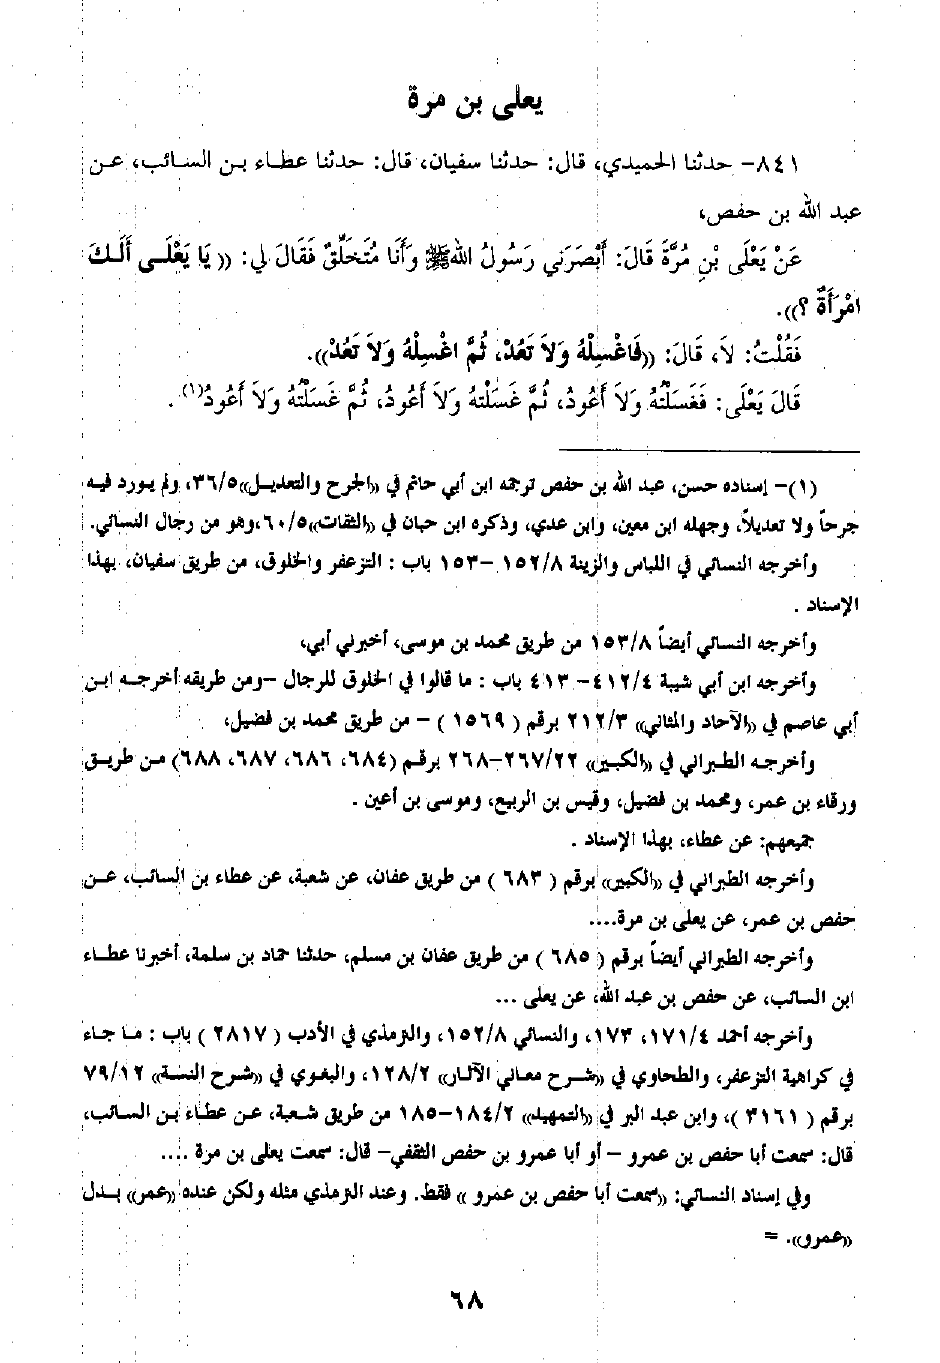 يعلى بن مرة
٨٤١- حدثنا الحميدي، قال: حدثنا سفيان، قال: حدثنا عطاء بن السائب، عن
عبد الله بن حفص،
عَنْ يَعْلَى بْنِ مُرَّةَ قَالَ: أَبْصَرَنِي رَسُولُ اللهِ ﷺ وَأَنَا مُتَخَلِّقٌ فَقَالَ لِي: ((يَا يَعْلَى أَلَكَ
امْرَأَةٌ ؟)).
فَقُلْتُ: لاَ، قَالَ: ((فَاغْسِلْهُ وَلاَ تَعُدْ، ثُمَّ اغْسِلْهُ وَلاَ تَعُدْ)).
قَالَ يَعْلَى: فَغَسَلْتُهُ وَلاَ أَعُودُ، ثُمَّ غَسَلْتُهُ وَلاَ أَعُودُ، ثُمَّ غَسَلْتُهُ وَلاَ أَعُودُ(١) .
(١)- إسناده حسن، عبد الله بن حفص ترجمه ابن أبي حاتم في ((الجرح والتعديل)) ٣٦/٥، ولم يورد فيه
جرحاً ولا تعديلاً، وجهله ابن معين، وابن عدي، وذكره ابن حبان في ((الثقات)) ٦٠/٥،وهو من رجال النسائي.
وأخرجه النسائي في اللباس والزينة ١٥٢/٨ -١٥٣ باب : التزعفر والخلوق، من طريق سفيان، بهذا
الإسناد .
وأخرجه النسائي أيضاً ١٥٣/٨ من طريق محمد بن موسى، أخبرني أبي،
وأخرجه ابن أبي شيبة ٤١٢/٤- ٤١٣ باب : ما قالوا في الخلوق للرجال -ومن طريقه أخرجه ابن
أبي عاصم في ((الآحاد والمثاني)) ٢١٢/٣ برقم ( ١٥٦٩ ) - من طريق محمد بن فضيل،
وأخرجه الطبراني في ((الكبير)) ٢٦٧/٢٢-٢٦٨ برقم (٦٨٤، ٦٨٦، ٦٨٧، ٦٨٨) من طريق
ورقاء بن عمر، ومحمد بن فضيل، وقيس بن الربيع، وموسى بن أعين .
جميعهم: عن عطاء، بهذا الإسناد .
وأخرجه الطبراني في ((الكبير)) برقم ( ٦٨٣ ) من طريق عفان، عن شعبة، عن عطاء بن السائب، عن
حفص بن عمر، عن يعلى بن مرة....
وأخرجه الطبراني أيضاً برقم ( ٦٨٥ ) من طريق عفان بن مسلم، حدثنا حماد بن سلمة، أخبرنا عطاء
ابن السائب، عن حفص بن عبد الله، عن يعلى ...
وأخرجه أحمد ١٧١/٤، ١٧٣، والنسائي ١٥٢/٨، والترمذي في الأدب ( ٢٨١٧ ) باب : ما جاء
في كراهية التزعفر، والطحاوي في ((شرح معاني الآثار)) ١٢٨/٢، والبغوي في ((شرح السنة)) ٧٩/١٢
برقم ( ٣١٦١ )، وابن عبد البر في ((التمهيد)) ١٨٤/٢-١٨٥ من طريق شعبة، عن عطاء بن السائب،
قال: سمعت أبا حفص بن عمرو - أو أبا عمرو بن حفص الثقفي- قال: سمعت يعلى بن مرة ....
وفي إسناد النسائي: ((سمعت أبا حفص بن عمرو )) فقط. وعند الترمذي مثله ولكن عنده ((عمر)) بدل
((عمرو)). =
٦٨